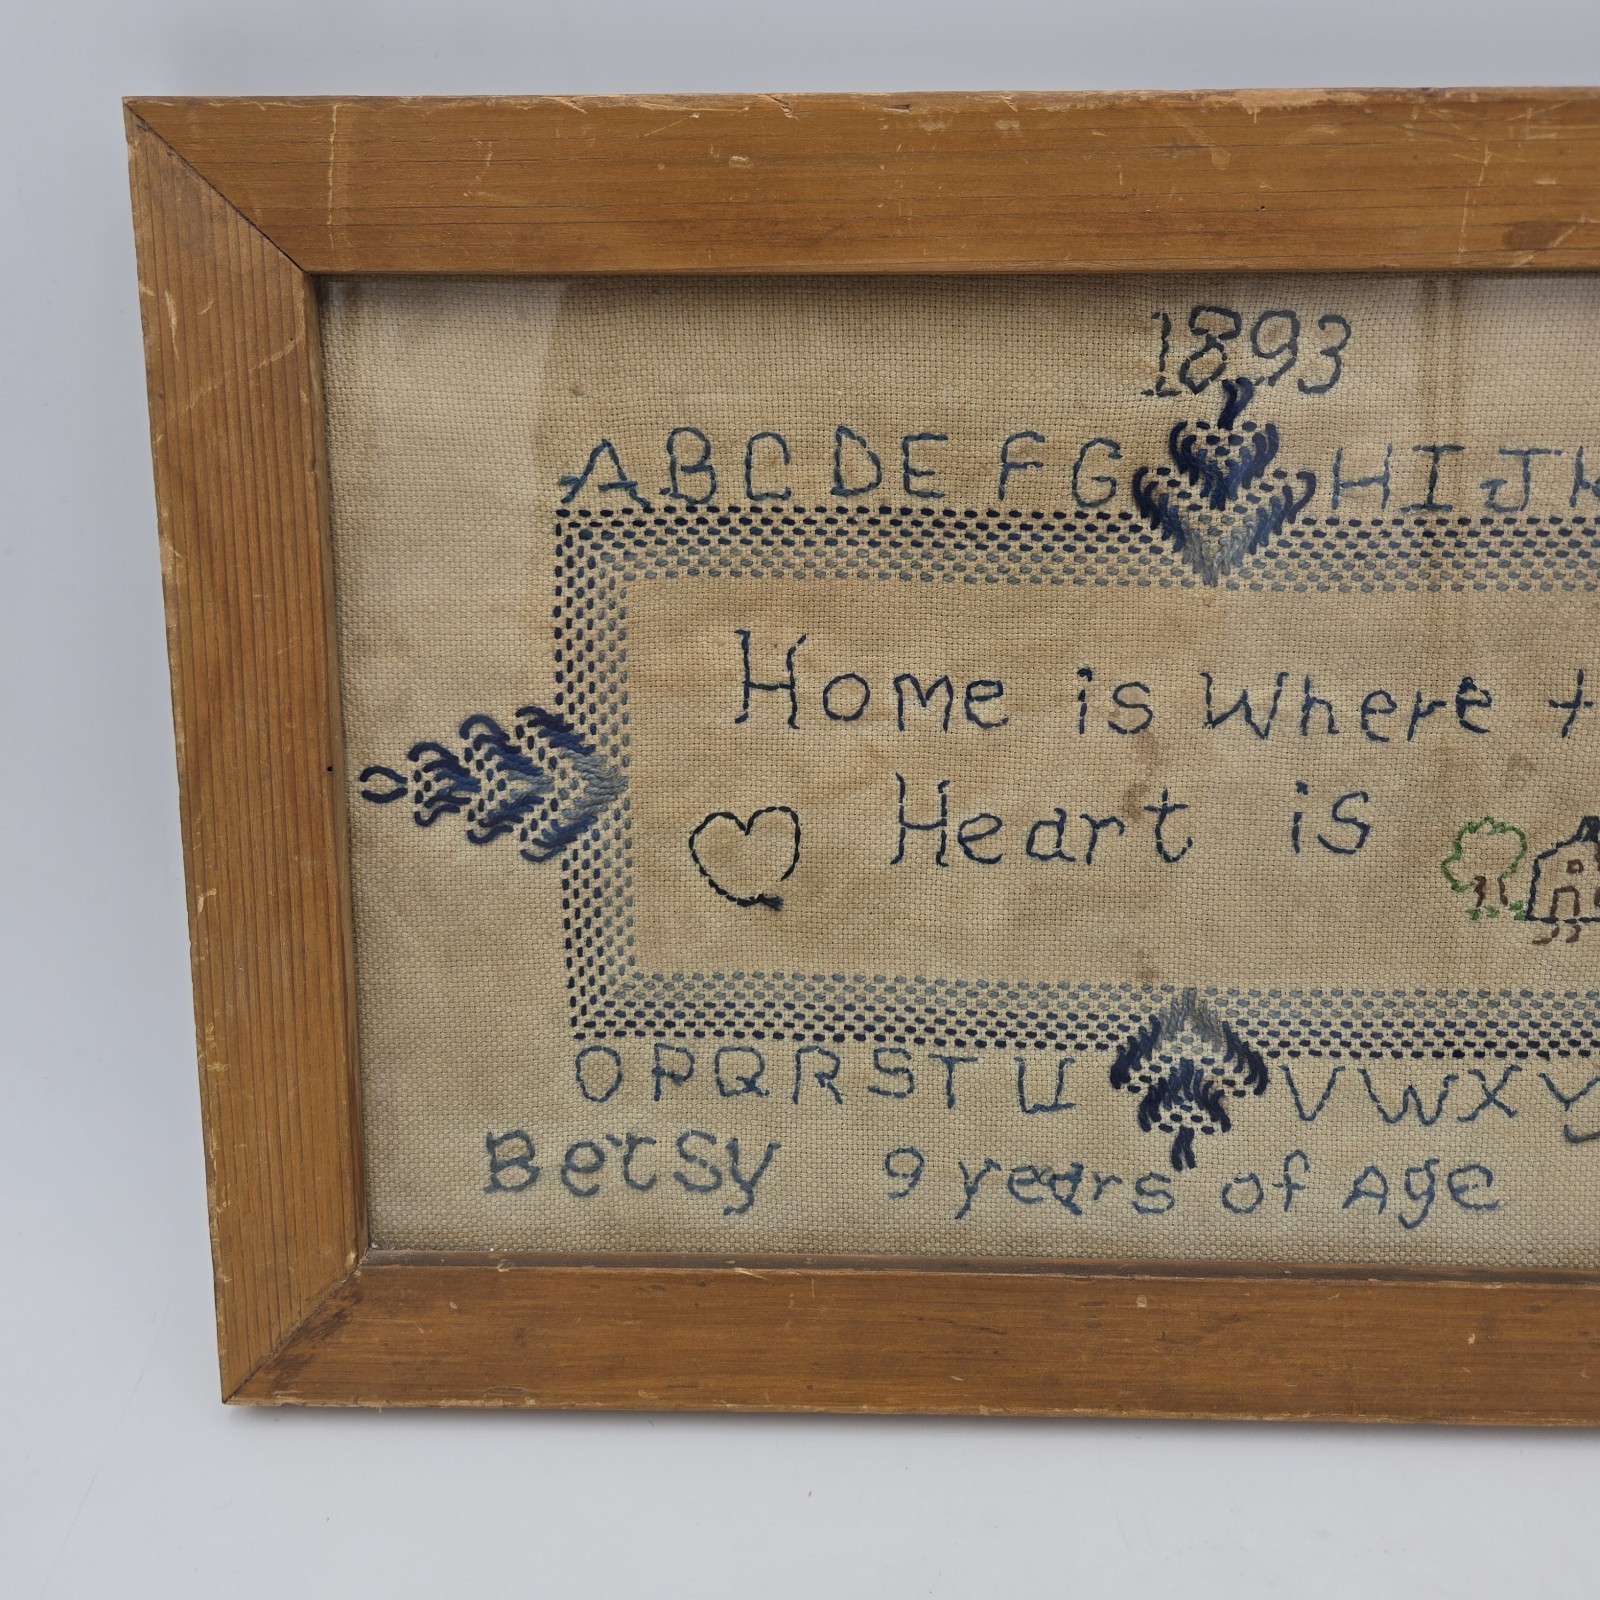 1893
ABCDEFG HIJK
Home is Where t
Heart is
OPQRSTU VWXY
Betsy 9 years of Age